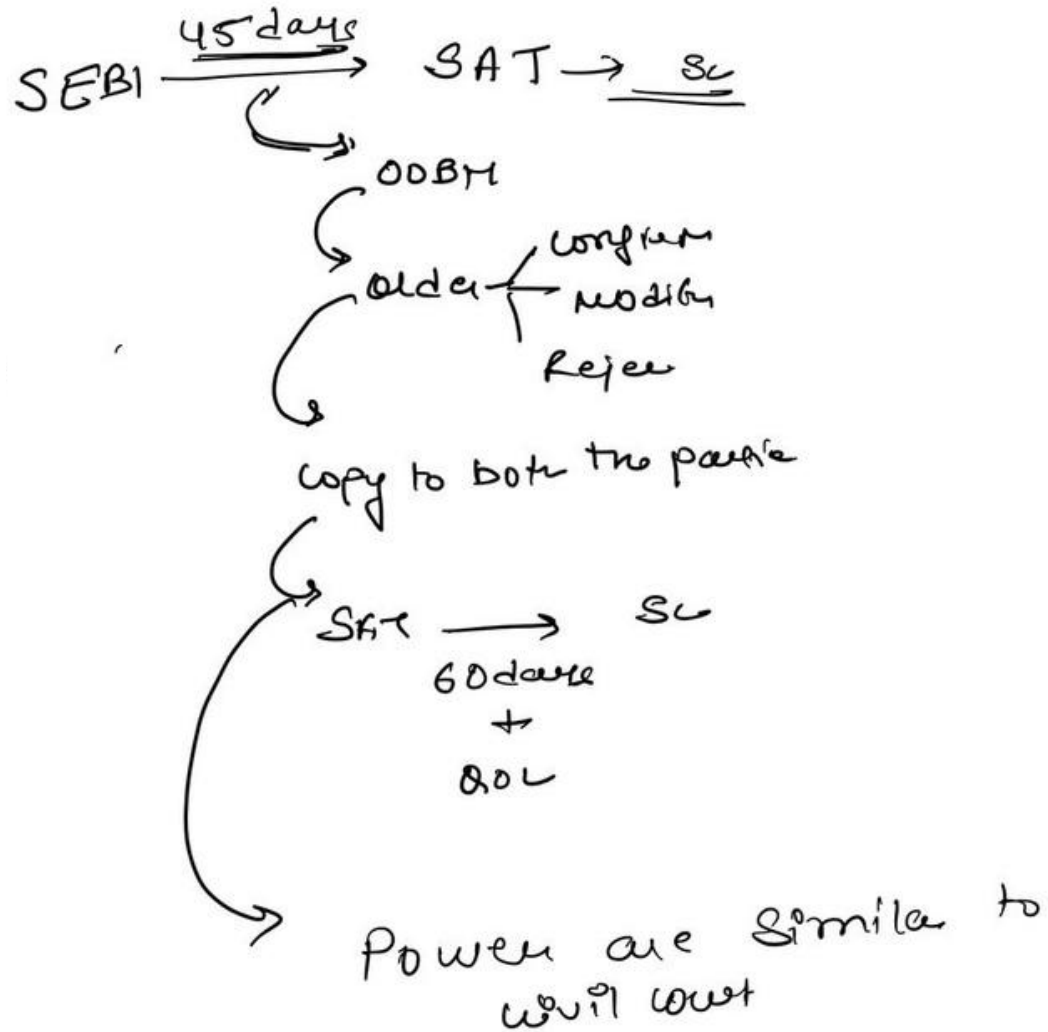 45 days
SEBI → SAT → SC
OOBH
Order
Confirm
Modify
Reject
Copy to both the partie
SAT → SC
60 days
+
QOL
Power are similar to
civil court